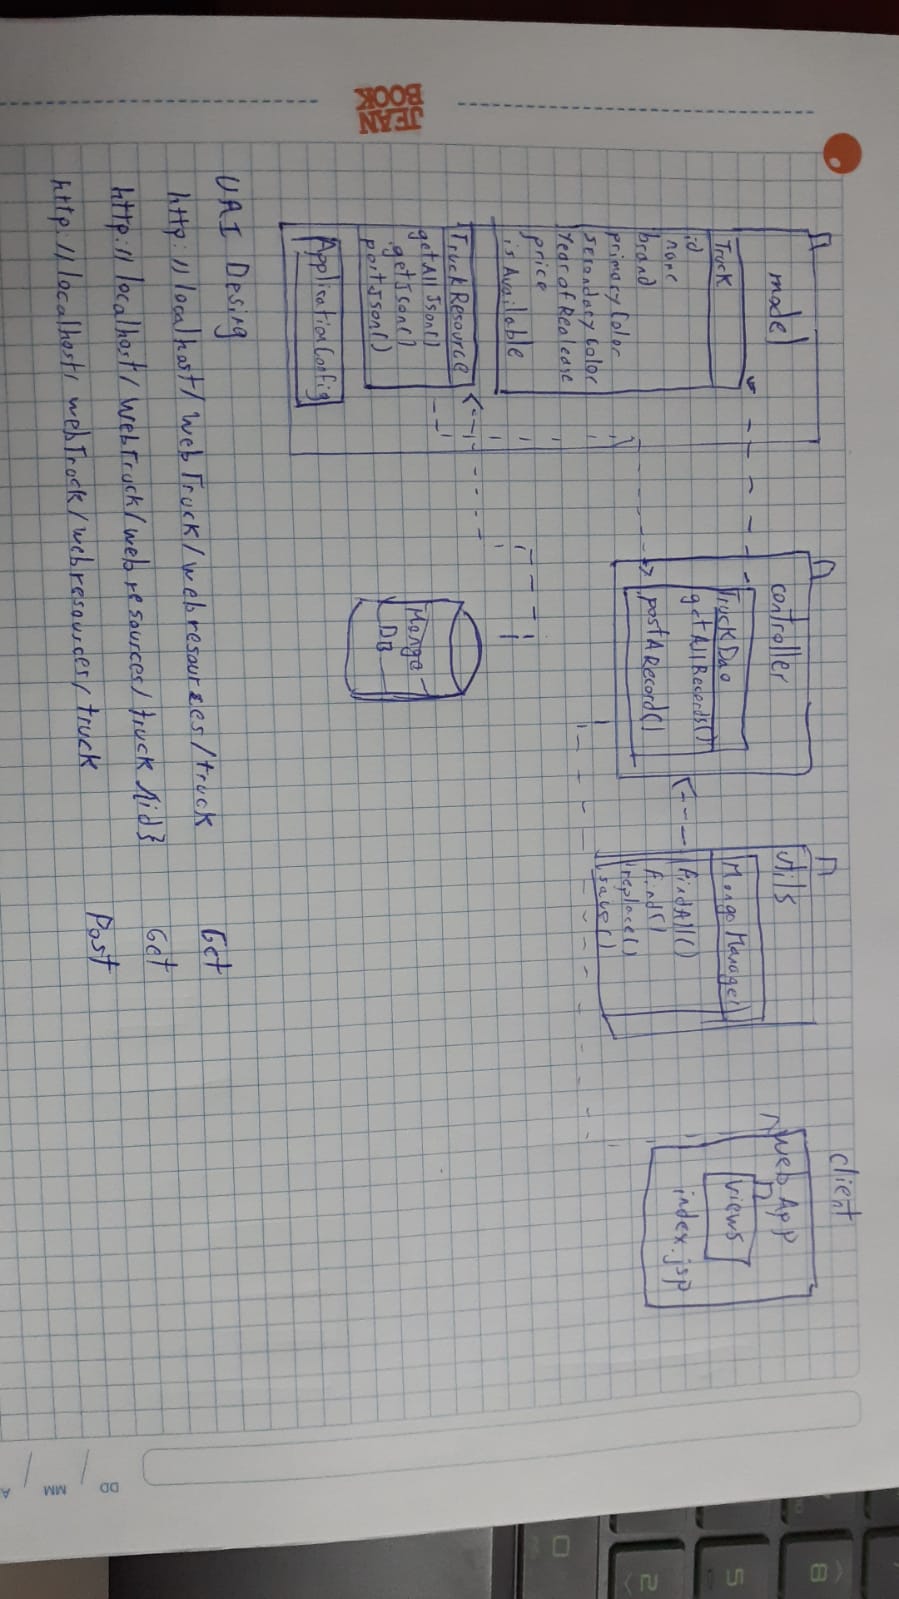 JEAN
BOOK
client
model
Truck
id
name
brand
primaryColor
secondaryColor
YearOfRealease
price
isAvailable
TruckResource
getAllJson()
getJson()
postJson()
ApplicationConfig
controller
TruckDao
getAllRecords()
postARecord()
Utils
MongoManager
findAll()
find()
replace()
save()
Web App
views
index.jsp
Mongo
DB
UAI Desing
http://localhost/webTruck/webresources/truck Get
http://localhost/webTruck/webresources/truck/{id} Get
http://localhost/webTruck/webresources/truck Post
DD / MM / A
0
2
5
8